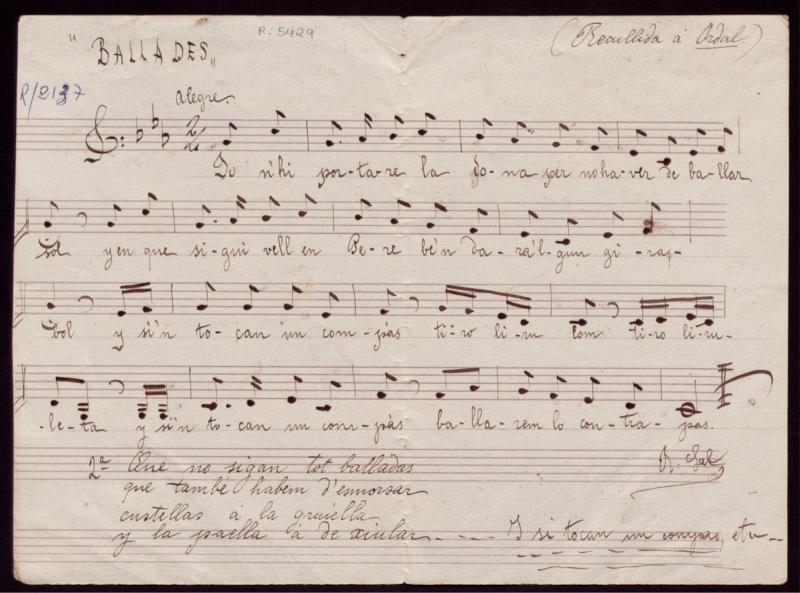 R. 5429
(Recullida á Ordal)
"BALLADES"
R/2137
Alegre.
Jo n'hi por-ta-re la do-na per no ha-ver de ba-llar
sol y en que si-gui vell en Pe-re be'n da-rá'l-gun gi-rap-
bol y si'n to-can un com-pás ti-ro li-ru com ti-ro li-ru-
-le-ta y si'n to-can un com-pás ba-lla-rem lo con-tra-pas.
2ª Que no sigan tot balladas
que també habem d'esmorsar
custellas á la graella
y la paella á de xiular ---- I si tocan un compas, etc--